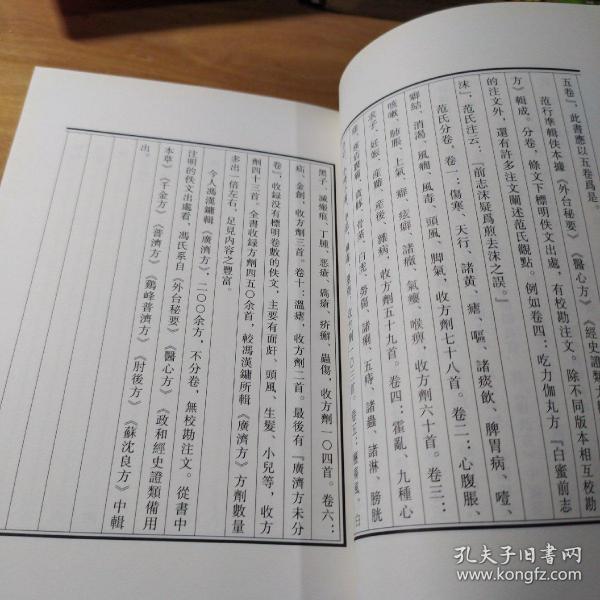 五卷』，此書應以五卷爲是。
范行準輯佚本據《外台秘要》《醫心方》《經史證類
方》輯成。分卷，條文下標明佚文出處，有校勘注文。除不同版本相互校勘
的注文外，還有許多注文闡述范氏觀點。例如卷四：吃力伽丸方『白蜜前志
沫』，范氏注云：『前志沫疑爲煎去沫之誤。』
范氏分卷，卷一：傷寒、天行、諸黄、瘧、嘔、諸痰飲、脾胃病、噎、
癖結、消渴、風癇、風毒、頭風、脚氣，收方劑七十八首。卷二：心腹脹、
咳嗽、肺脹、上氣、癖、痃癖、諸癥、氣癭、喉痹，收方劑六十首。卷三：
求子、妊娠、産難、産後、雜病，收方劑五十九首。卷四：霍亂、九種心
痛、骨蒸、白禿、勞傷、諸痢、五痔、諸蟲、諸淋、膀胱
卷五：白
黑子、滅瘢痕、丁腫、惡瘡、疥癬、蟲傷，收方劑一〇四首。卷六：
瘑、金創，收方劑三首。卷十：溫瘧，收方劑二首。最後有『廣濟方未分
卷』，收録没有標明卷數的佚文，主要有面皯、頭風、生髮、小兒等，收方
劑四十三首。全書收録方劑四五〇余首，較馮漢鏞所輯《廣濟方》方劑數量
多出一倍左右，足見内容之豐富。
今人馮漢鏞輯《廣濟方》，二〇〇余方，不分卷，無校勘注文。從書中
注明的佚文出處看，馮氏系自《外台秘要》《醫心方》《政和經史證類備用
本草》《千金方》《普濟方》《鷄峰普濟方》《肘後方》《蘇沈良方》中輯
出。
孔夫子旧書网
www.kongfz.com